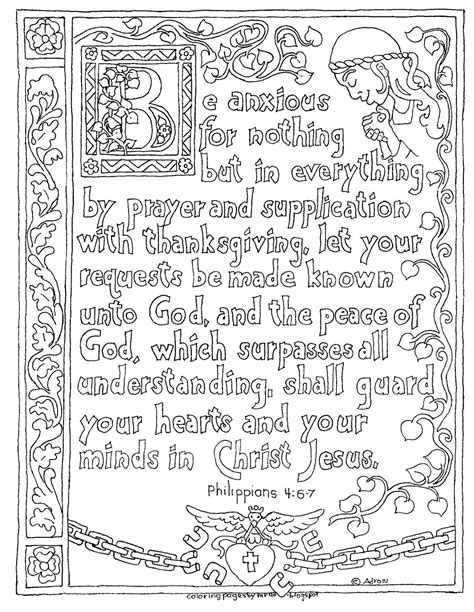 Be anxious
for nothing
but in everything
by prayer and supplication
with thanksgiving, let your
requests be made known
unto God, and the peace of
God, which surpasses all
understanding, shall guard
your hearts and your
minds in Christ Jesus.
Philippians 4:6-7
© Adron